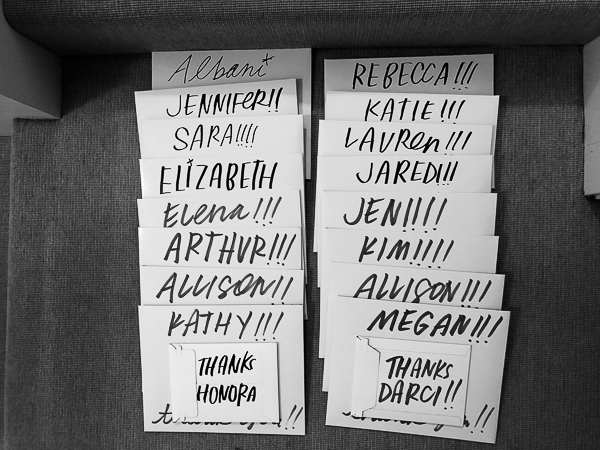 Albani
JENNIFER!!
SARA!!!!
ELIZABETH
Elena!!!
ARTHUR!!!
ALLISON!!
KATHY!!!
THANKS
HONORA
REBECCA!!!
KATIE!!!
LAUREN!!!
JARED!!!
JEN!!!!
KIM!!!!
ALLISON!!!
MEGAN!!!
THANKS
DARCI!!